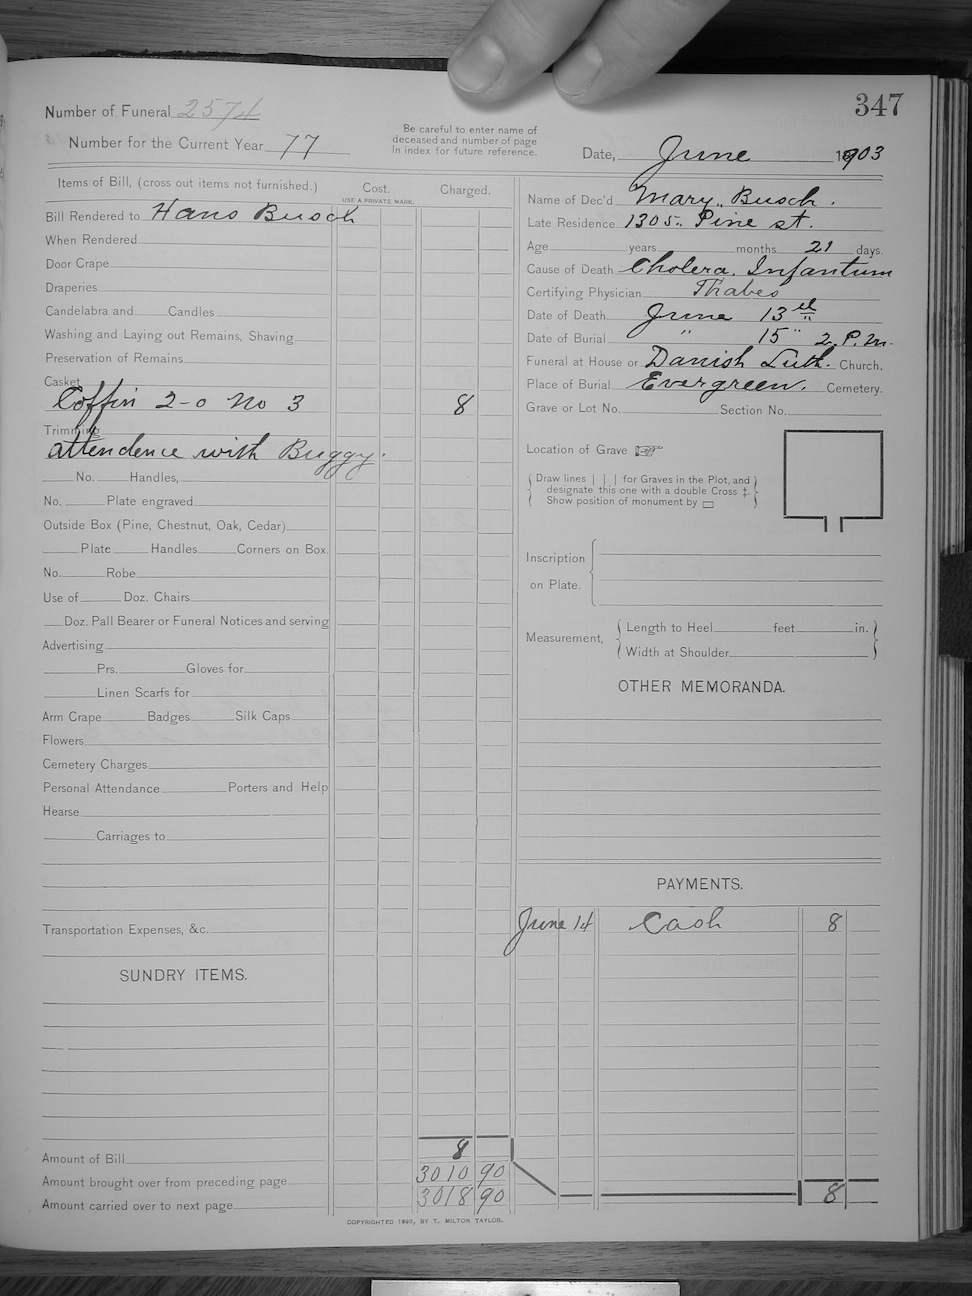 347
Number of Funeral 2574
Number for the Current Year 77
Be careful to enter name of
deceased and number of page
In index for future reference.
Date, June 1903
Items of Bill, (cross out items not furnished.) Cost. Charged.
USE A PRIVATE MARK.
Bill Rendered to Hans Busch
When Rendered
Door Crape
Draperies
Candelabra and Candles
Washing and Laying out Remains, Shaving
Preservation of Remains
Casket
Coffin 2-0 No 3 8
Trimming
attendence with Buggy.
No. Handles,
No. Plate engraved
Outside Box (Pine, Chestnut, Oak, Cedar)
Plate Handles Corners on Box.
No. Robe
Use of Doz. Chairs
Doz. Pall Bearer or Funeral Notices and serving
Advertising
Prs. Gloves for
Linen Scarfs for
Arm Crape Badges Silk Caps
Flowers
Cemetery Charges
Personal Attendance Porters and Help
Hearse
Carriages to
Transportation Expenses, &c.
SUNDRY ITEMS.
Amount of Bill 8
Amount brought over from preceding page 3010 90
Amount carried over to next page 3018 90
Name of Dec'd Mary Busch.
Late Residence 1305 Pine st.
Age years months 21 days.
Cause of Death Cholera Infantum
Certifying Physician Thabes
Date of Death June 13
Date of Burial " 15" 2 P.M.
Funeral at House or Danish Luth. Church.
Place of Burial Evergreen. Cemetery.
Grave or Lot No. Section No.
Location of Grave
Draw lines | | | for Graves in the Plot, and
designate this one with a double Cross ‡.
Show position of monument by
Inscription
on Plate.
Measurement, Length to Heel feet in.
Width at Shoulder
OTHER MEMORANDA.
PAYMENTS.
June 14 Cash 8
8
COPYRIGHTED 1890, BY T. MILTON TAYLOR.